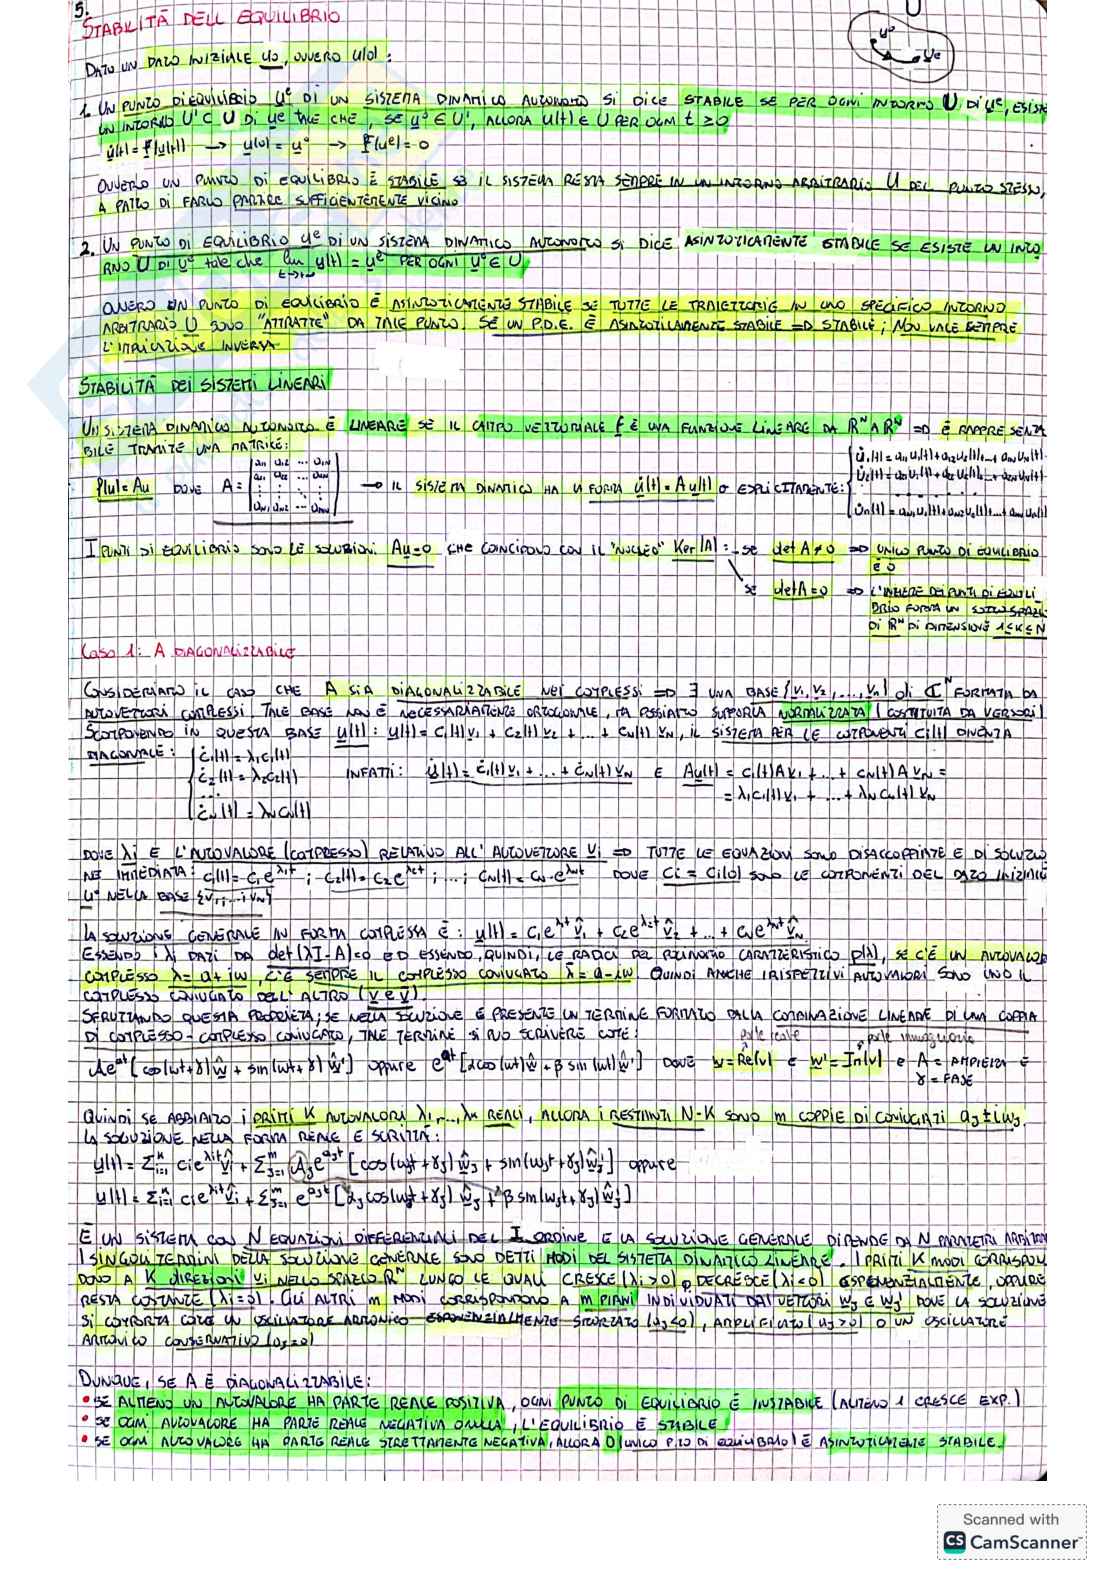 5.
STABILITÀ DELL EQUILIBRIO
DATO UN DATO INIZIALE u0, OVVERO u(0):
u°
ue
1. UN PUNTO DI EQUILIBRIO ue DI UN SISTEMA DINAMICO AUTONOMO SI DICE STABILE SE PER OGNI INTORNO U DI ue, ESISTE
UN INTORNO U' ⊂ U DI ue TALE CHE, SE u° ∈ U', ALLORA u(t) ∈ U PER OGNI t ≥ 0
u̇(t) = f(u(t)) → u(0) = u° → f(ue) = 0
OVVERO UN PUNTO DI EQUILIBRIO È STABILE SE IL SISTEMA RESTA SEMPRE IN UN INTORNO ARBITRARIO U DEL PUNTO STESSO,
A PATTO DI FARLO PARTIRE SUFFICIENTEMENTE VICINO
2. UN PUNTO DI EQUILIBRIO ue DI UN SISTEMA DINAMICO AUTONOMO SI DICE ASINTOTICAMENTE STABILE SE ESISTE UN INTO
RNO U DI ue tale che lim t→+∞ u(t) = ue PER OGNI u° ∈ U
OVVERO UN PUNTO DI EQUILIBRIO È ASINTOTICAMENTE STABILE SE TUTTE LE TRAIETTORIE IN UNO SPECIFICO INTORNO
ARBITRARIO U SONO "ATTRATTE" DA TALE PUNTO. SE UN P.D.E. È ASINTOTICAMENTE STABILE => STABILE; NON VALE SEMPRE
L'IMPLICAZIONE INVERSA
STABILITÀ DEI SISTEMI LINEARI
UN SISTEMA DINAMICO AUTONOMO È LINEARE SE IL CAMPO VETTORIALE f È UNA FUNZIONE LINEARE DA ℝᴺ A ℝᴺ => È RAPPRESENTA
BILE TRAMITE UNA MATRICE:
f(u) = Au DOVE A = [a11 a12 ... a1N; a21 a22 ... a2N; ⋮; aN1 aN2 ... aNN] → IL SISTEMA DINAMICO HA LA FORMA u̇(t) = Au(t) O ESPLICITAMENTE:
u̇1(t) = a11 u1(t) + a12 u2(t) + ... + a1N uN(t)
u̇2(t) = a21 u1(t) + a22 u2(t) + ... + a2N uN(t)
. . . . . .
u̇N(t) = aN1 u1(t) + aN2 u2(t) + ... + aNN uN(t)
I PUNTI DI EQUILIBRIO SONO LE SOLUZIONI Au=0 CHE COINCIDONO CON IL "NUCLEO" Ker(A): - SE det A ≠ 0 => UNICO PUNTO DI EQUILIBRIO
È 0
SE det A = 0 => L'INSIEME DEI PUNTI DI EQUILI
BRIO FORMA UN SOTTOSPAZIO
DI ℝᴺ DI DIMENSIONE 1≤K≤N
Caso 1: A DIAGONALIZZABILE
CONSIDERIAMO IL CASO CHE A SIA DIAGONALIZZABILE NEI COMPLESSI => ∃ UNA BASE {v1, v2, ..., vn} di ℂᴺ FORMATA DA
AUTOVETTORI COMPLESSI. TALE BASE NON È NECESSARIAMENTE ORTOGONALE, MA POSSIAMO SUPPORLA NORMALIZZATA (COSTITUITA DA VERSORI)
SCOMPONENDO IN QUESTA BASE u(t): u(t) = c1(t) v1 + c2(t) v2 + ... + cN(t) vN, IL SISTEMA PER LE COMPONENTI Ci(t) DIVENTA
DIAGONALE:
ċ1(t) = λ1c1(t)
ċ2(t) = λ2c2(t)
...
ċN(t) = λN cN(t)
INFATTI: u̇(t) = ċ1(t) v1 + ... + ċN(t) vN E Au(t) = c1(t) A v1 + ... + cN(t) A vN =
= λ1c1(t) v1 + ... + λN cN(t) vN
DOVE λi È L'AUTOVALORE (COMPLESSO) RELATIVO ALL'AUTOVETTORE vi => TUTTE LE EQUAZIONI SONO DISACCOPPIATE E DI SOLUZIO
NE IMMEDIATA: c1(t) = c1 e^λ1t; c2(t) = c2 e^λ2t; ...; cN(t) = cN e^λNt DOVE ci = ci(0) SONO LE COMPONENTI DEL DATO INIZIALE
u° NELLA BASE {v1, ..., vN}
LA SOLUZIONE GENERALE IN FORMA COMPLESSA È: u(t) = c1e^λ1t v̂1 + c2e^λ2t v̂2 + ... + cNe^λNt v̂N
ESSENDO I λi DATI DA det(λI-A)=0 ED ESSENDO, QUINDI, LE RADICI DEL POLINOMIO CARATTERISTICO p(λ), SE C'È UN AUTOVALORE
COMPLESSO λ = a+iw, C'È SEMPRE IL COMPLESSO CONIUGATO λ̄ = a-iw. QUINDI ANCHE I RISPETTIVI AUTOVALORI SONO UNO IL
COMPLESSO CONIUGATO DELL'ALTRO (v e v̄).
SFRUTTANDO QUESTA PROPRIETÀ; SE NELLA SOLUZIONE È PRESENTE UN TERMINE FORMATO DALLA COMBINAZIONE LINEARE DI UNA COPPIA
DI COMPLESSO-COMPLESSO CONIUGATO, TALE TERMINE SI PUÒ SCRIVERE COME:
parte reale
parte immaginaria
Ae^at [cos(wt+γ) ŵ + sin(wt+γ) ŵ'] oppure e^at [α cos(wt) ŵ + β sin(wt) ŵ'] DOVE w = Re(v) E w' = Im(v) e A = AMPIEZZA E
γ = FASE
QUINDI SE ABBIAMO I PRIMI K AUTOVALORI λ1, ..., λK REALI, ALLORA I RESTANTI N-K SONO m COPPIE DI CONIUGATI aj ± iwj.
LA SOLUZIONE NELLA FORMA REALE È SCRITTA:
u(t) = Σᵢ₌₁ᴷ ci e^λit v̂i + Σⱼ₌₁ᵐ Aj e^ajt [cos(wjt+γj) ŵj + sin(wjt+γj) ŵj'] oppure
u(t) = Σᵢ₌₁ᴷ ci e^λit v̂i + Σⱼ₌₁ᵐ e^ajt [αj cos(wjt+γj) ŵj + β sin(wjt+γj) ŵj']
È UN SISTEMA CON N EQUAZIONI DIFFERENZIALI DEL I ORDINE E LA SOLUZIONE GENERALE DIPENDE DA N PARAMETRI ARBITRARI
I SINGOLI TERMINI DELLA SOLUZIONE GENERALE SONO DETTI MODI DEL SISTEMA DINAMICO LINEARE. I PRIMI K MODI CORRISPON
DONO A K DIREZIONI vi NELLO SPAZIO ℝᴺ LUNGO LE QUALI CRESCE (λi>0) O DECRESCE (λi<0) ESPONENZIALMENTE, OPPURE
RESTA COSTANTE (λi=0). GLI ALTRI m MODI CORRISPONDONO A m PIANI INDIVIDUATI DAI VETTORI wj E wj' DOVE LA SOLUZIONE
SI COMPORTA COME UN OSCILLATORE ARMONICO ESPONENZIALMENTE SMORZATO (aj<0), AMPLIFICATO (aj>0) O UN OSCILLATORE
ARMONICO CONSERVATIVO (aj=0)
DUNQUE, SE A È DIAGONALIZZABILE:
• SE ALMENO UN AUTOVALORE HA PARTE REALE POSITIVA, OGNI PUNTO DI EQUILIBRIO È INSTABILE (ALMENO 1 CRESCE EXP.)
• SE OGNI AUTOVALORE HA PARTE REALE NEGATIVA O NULLA, L'EQUILIBRIO È STABILE
• SE OGNI AUTOVALORE HA PARTE REALE STRETTAMENTE NEGATIVA, ALLORA 0 (UNICO P.TO DI EQUILIBRIO) È ASINTOTICAMENTE STABILE.
Scanned with
CS CamScanner